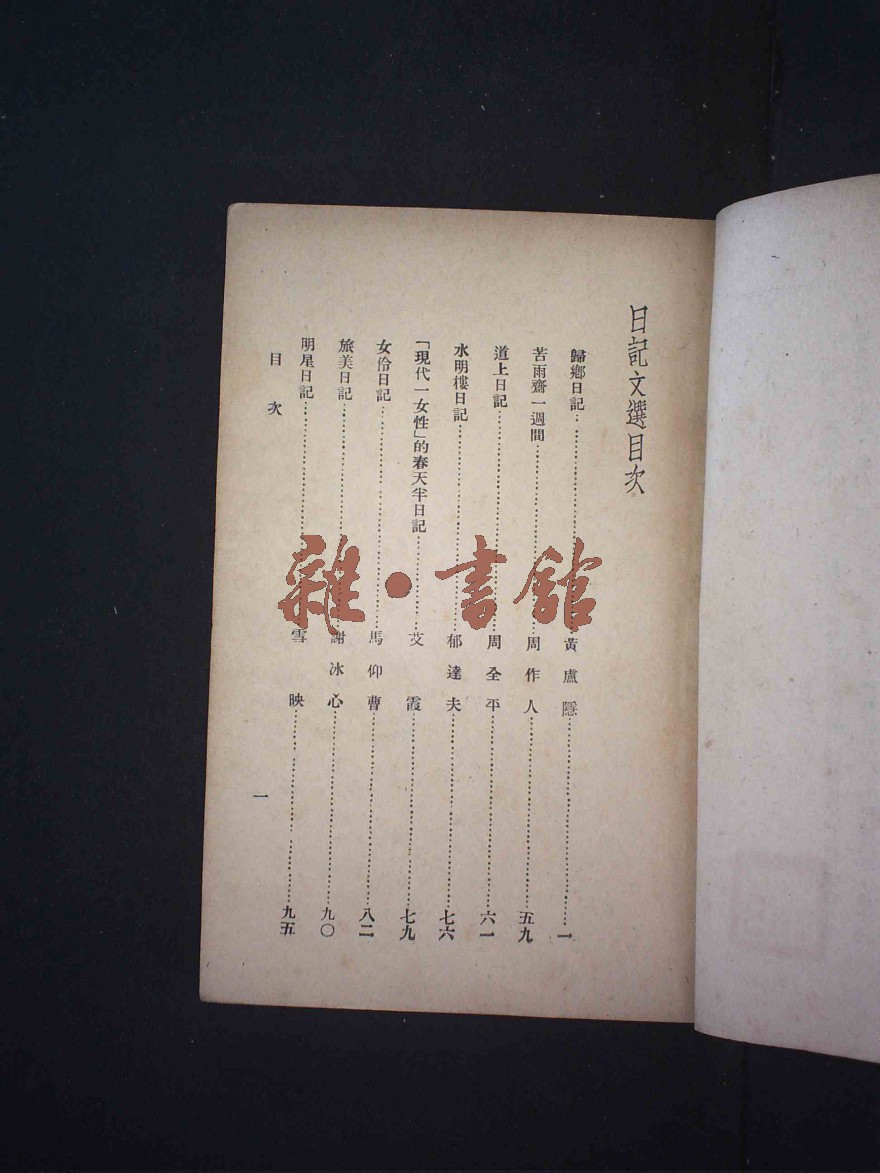 日記文選目次
歸鄉日記 黃盧隱 一
苦雨齋一週間 周作人 五九
道上日記 周全平 六一
水明樓日記 郁達夫 七六
「現代一女性」的春天半日記 艾霞 七九
女伶日記 馬仰曹 八二
旅美日記 謝冰心 九〇
明星日記 雪映 九五
目次
一
雜·書館